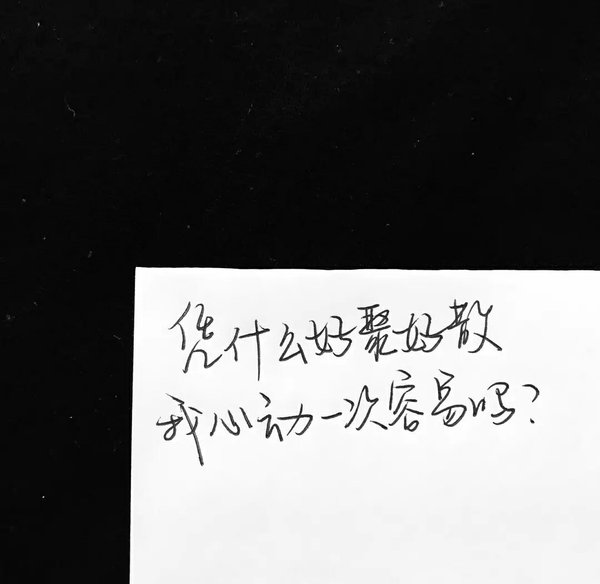 凭什么好聚好散
我心动一次容易吗？